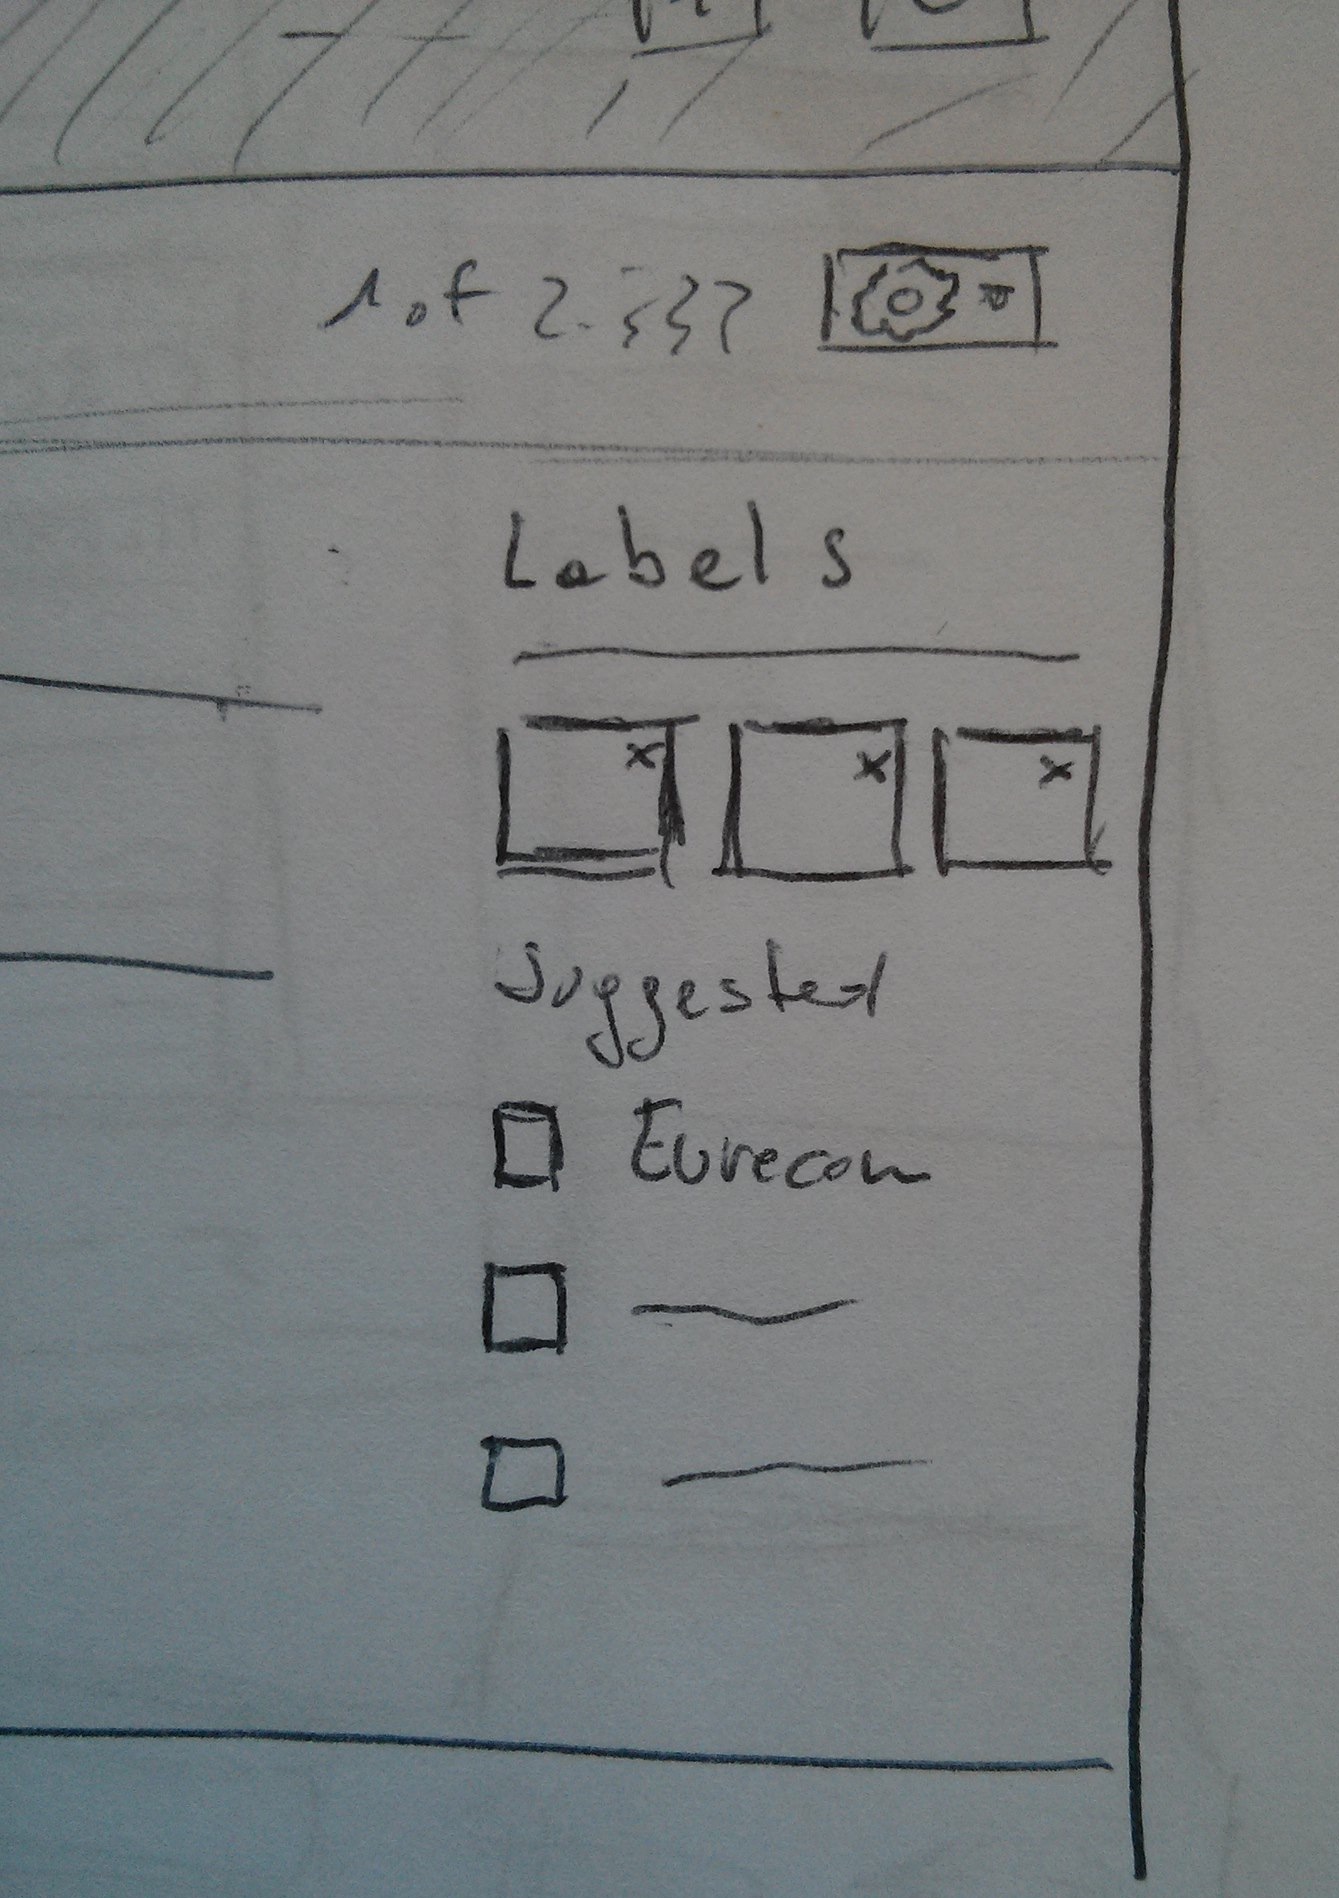 1 of 2.337
Labels
x x x
Suggested
Eurecom